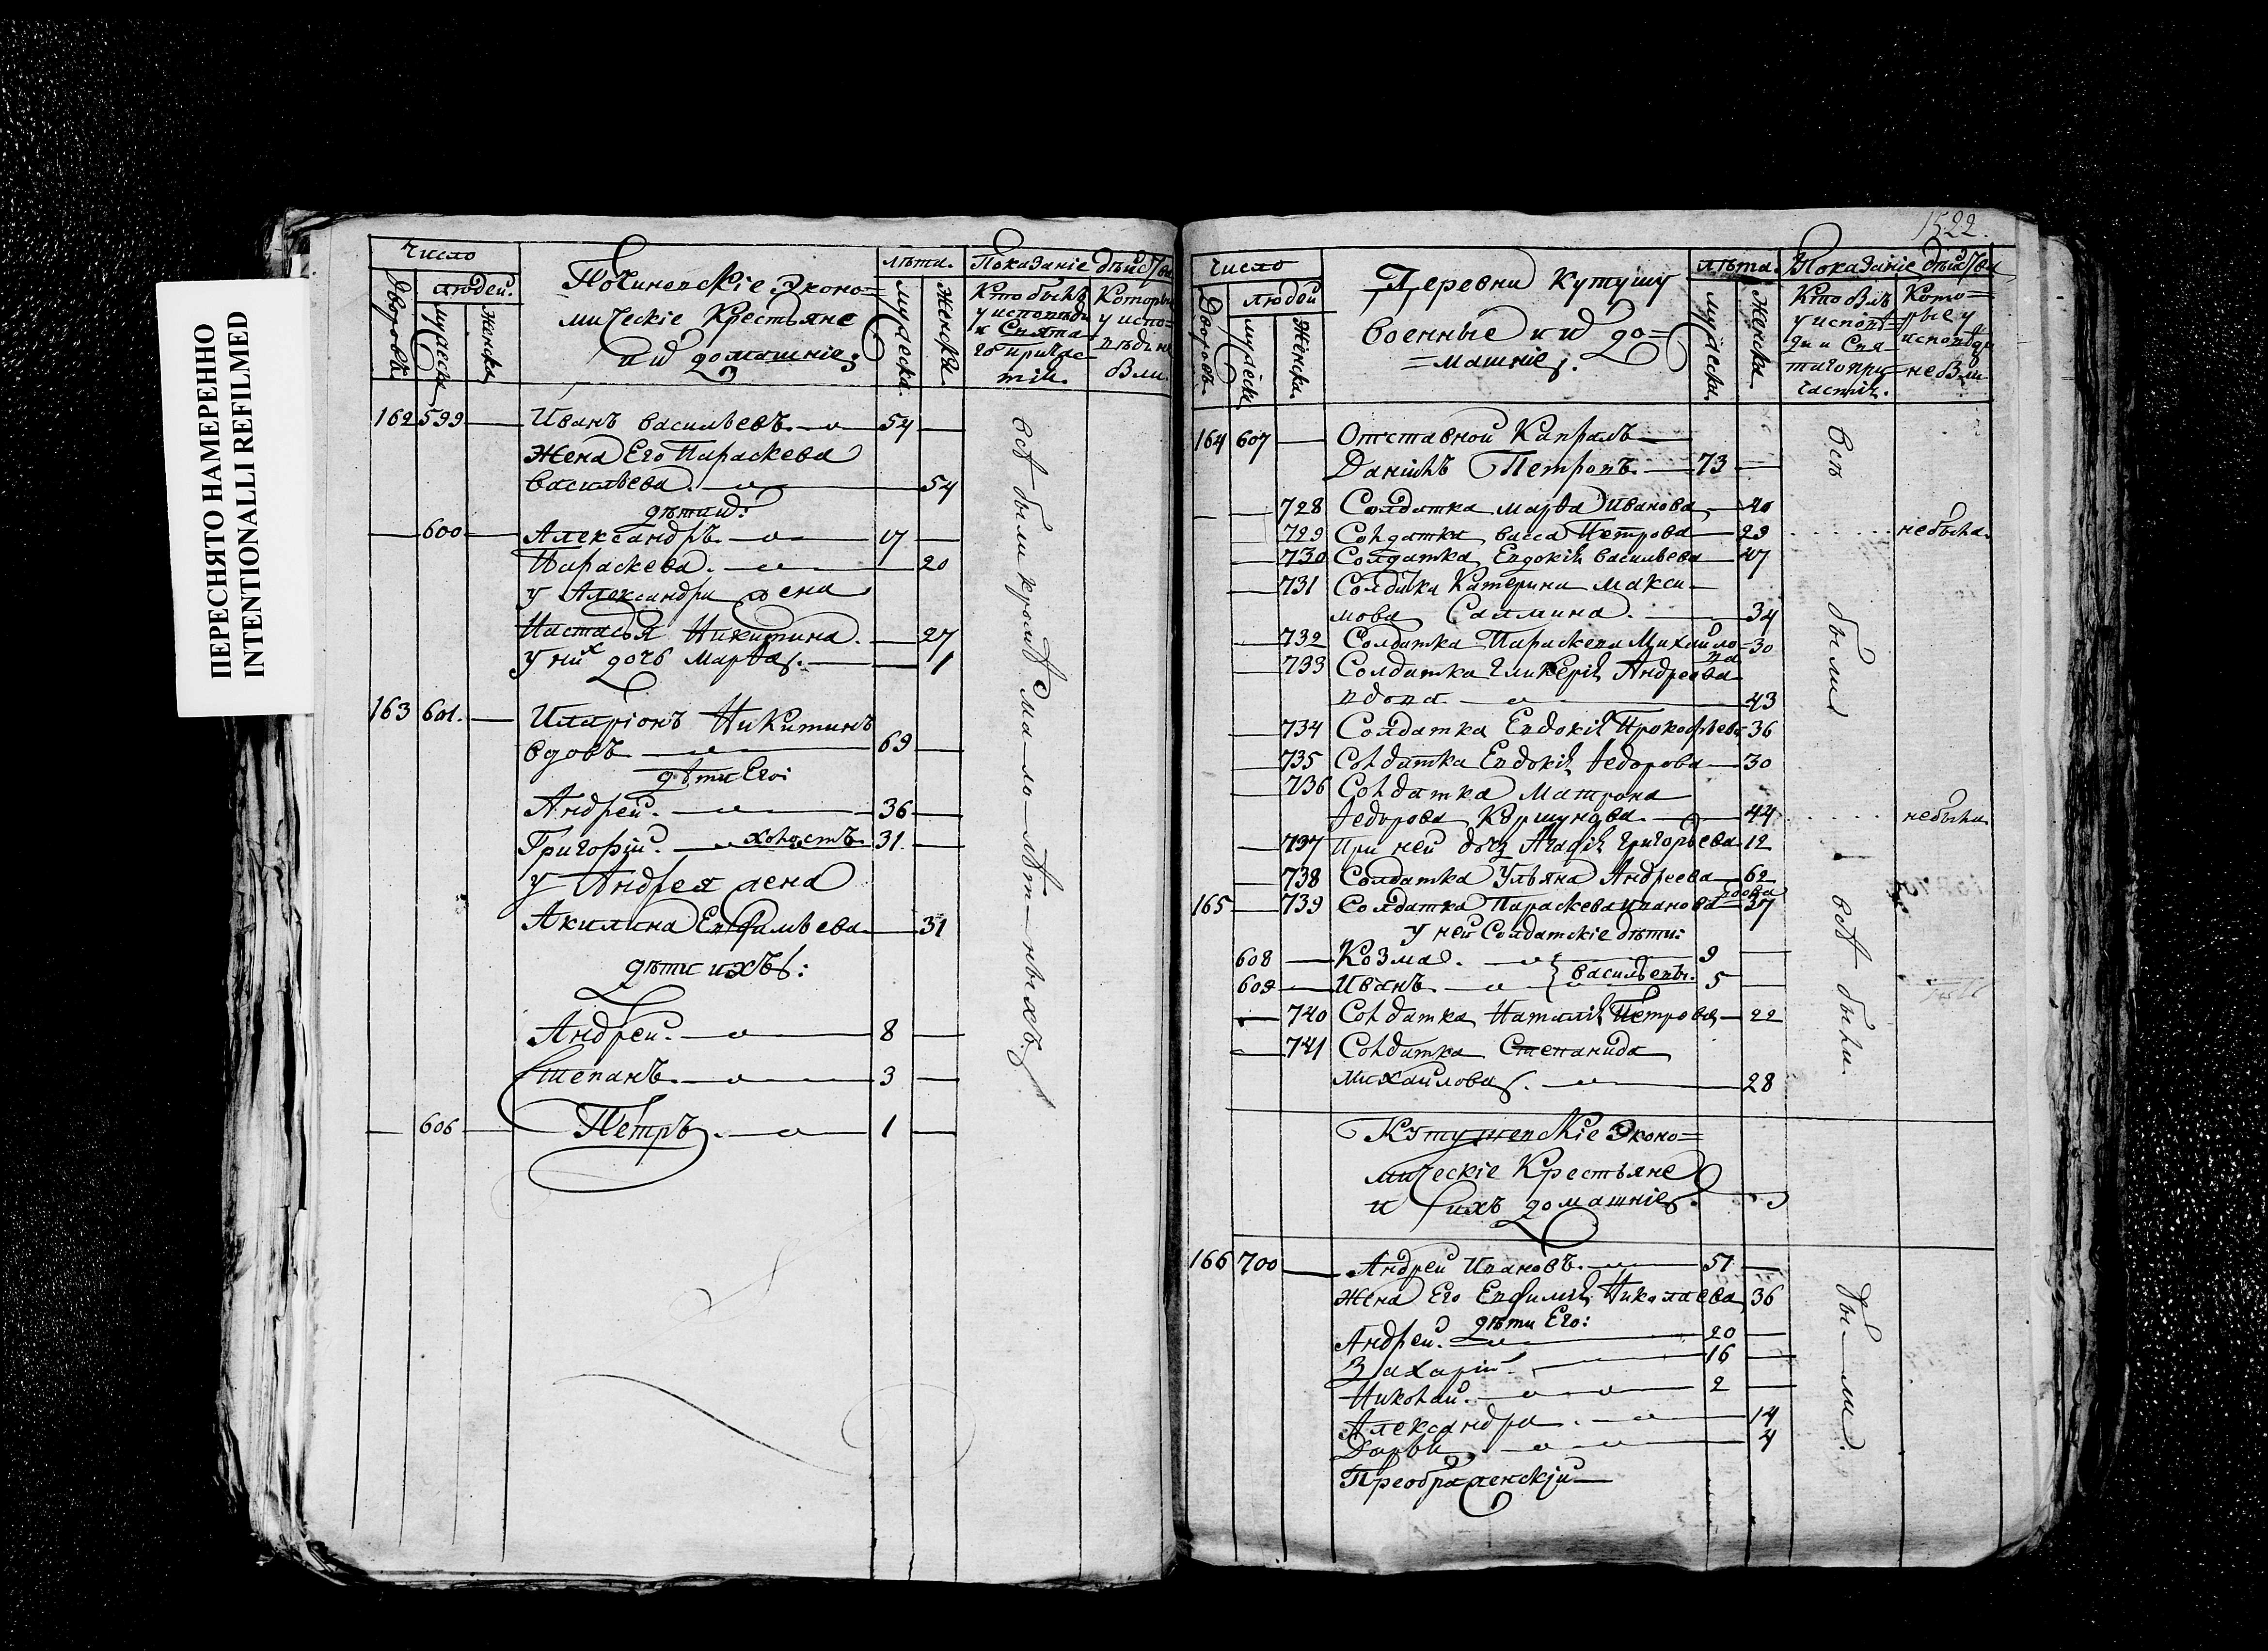 ПЕРЕСНЯТО НАМЕРЕННО
INTENTIONALLI REFILMED
Число
Дворовъ
людей.
мужеска
женска
Починевскіе Эконо=
мическіе Крестьяне
и их домашніе;
лѣта.
мужеска.
Женска.
Показаніе дѣйства
Кто былъ
у исповѣди
и Свята-
го причас-
тія.
Которые
у испо=
вѣди не
были.
162 599 Иванъ васильевъ. 54
Жена Его Параскева
васильева. 54
дѣти их:
600 Александръ. 17
Параскева. 20
у Александра жена
Настасья Никитина. 27
у них дочь марѳа. 1
163 601. Иларіонъ Никитинъ
вдовъ 69
дѣти Его:
Андрей. 36
Григорій. холостъ 31.
у Андрея жена
Акилина Евфимьева 31
дѣти ихъ:
Андрей. 8
Степанъ. 3
606 Петръ. 1
всѣ были кромѣ мало лѣтныхъ.
1522.
Число
Дворовъ
людей
мужеска
Женска
Деревни Кутушу
военные и их до=
=машніе.
лѣта.
мужеска
Женска
Показаніе дѣйства
Кто былъ
у исповѣ=
ди и Свя=
таго при=
частія.
Кото=
рые у
исповѣди
не были
164 607 Отставной Капралъ
Данiилъ Петровъ. 73
728 Солдатка марѳа Иванова 40
729 Солдатка васса Петрова 29 небыла.
730 Солдатка Евдокія васильева 47
731 Солдатка Катерина макси-
мова 34
732 Солдатка Параскева Михайло= 30
ва
733 Солдатка Гликерія Андреева
вдова 43
734 Солдатка Евдокія Прокофьева 36
735 Солдатка Евдокія Федорова 30
736 Солдатка Матрона
Федорова Коршунова 44 небыла
737 При ней дочь Агафія Григорьева 12
738 Солдатка Ульяна Андреева 62
вдова
165 739 Солдатка Параскева иванова 37
у ней Солдатскіе дѣти:
608 Козма. 9
609 Иванъ } васильевы. 5
740 Солдатка Наталія Петрова 22
741 Солдатка Степанида
михайлова. 28
всѣ были
всѣ были.
Кутушевскіе Эконо=
мическіе Крестьяне
и ихъ домашніе.
166 700 Андрей Ивановъ. 51
Жена Его Евфимія Николаева 36
дѣти Его:
Андрей. 20
Захарій 16
Николай. 2
Александра. 14
Дарья 4
Преображенскій
были.